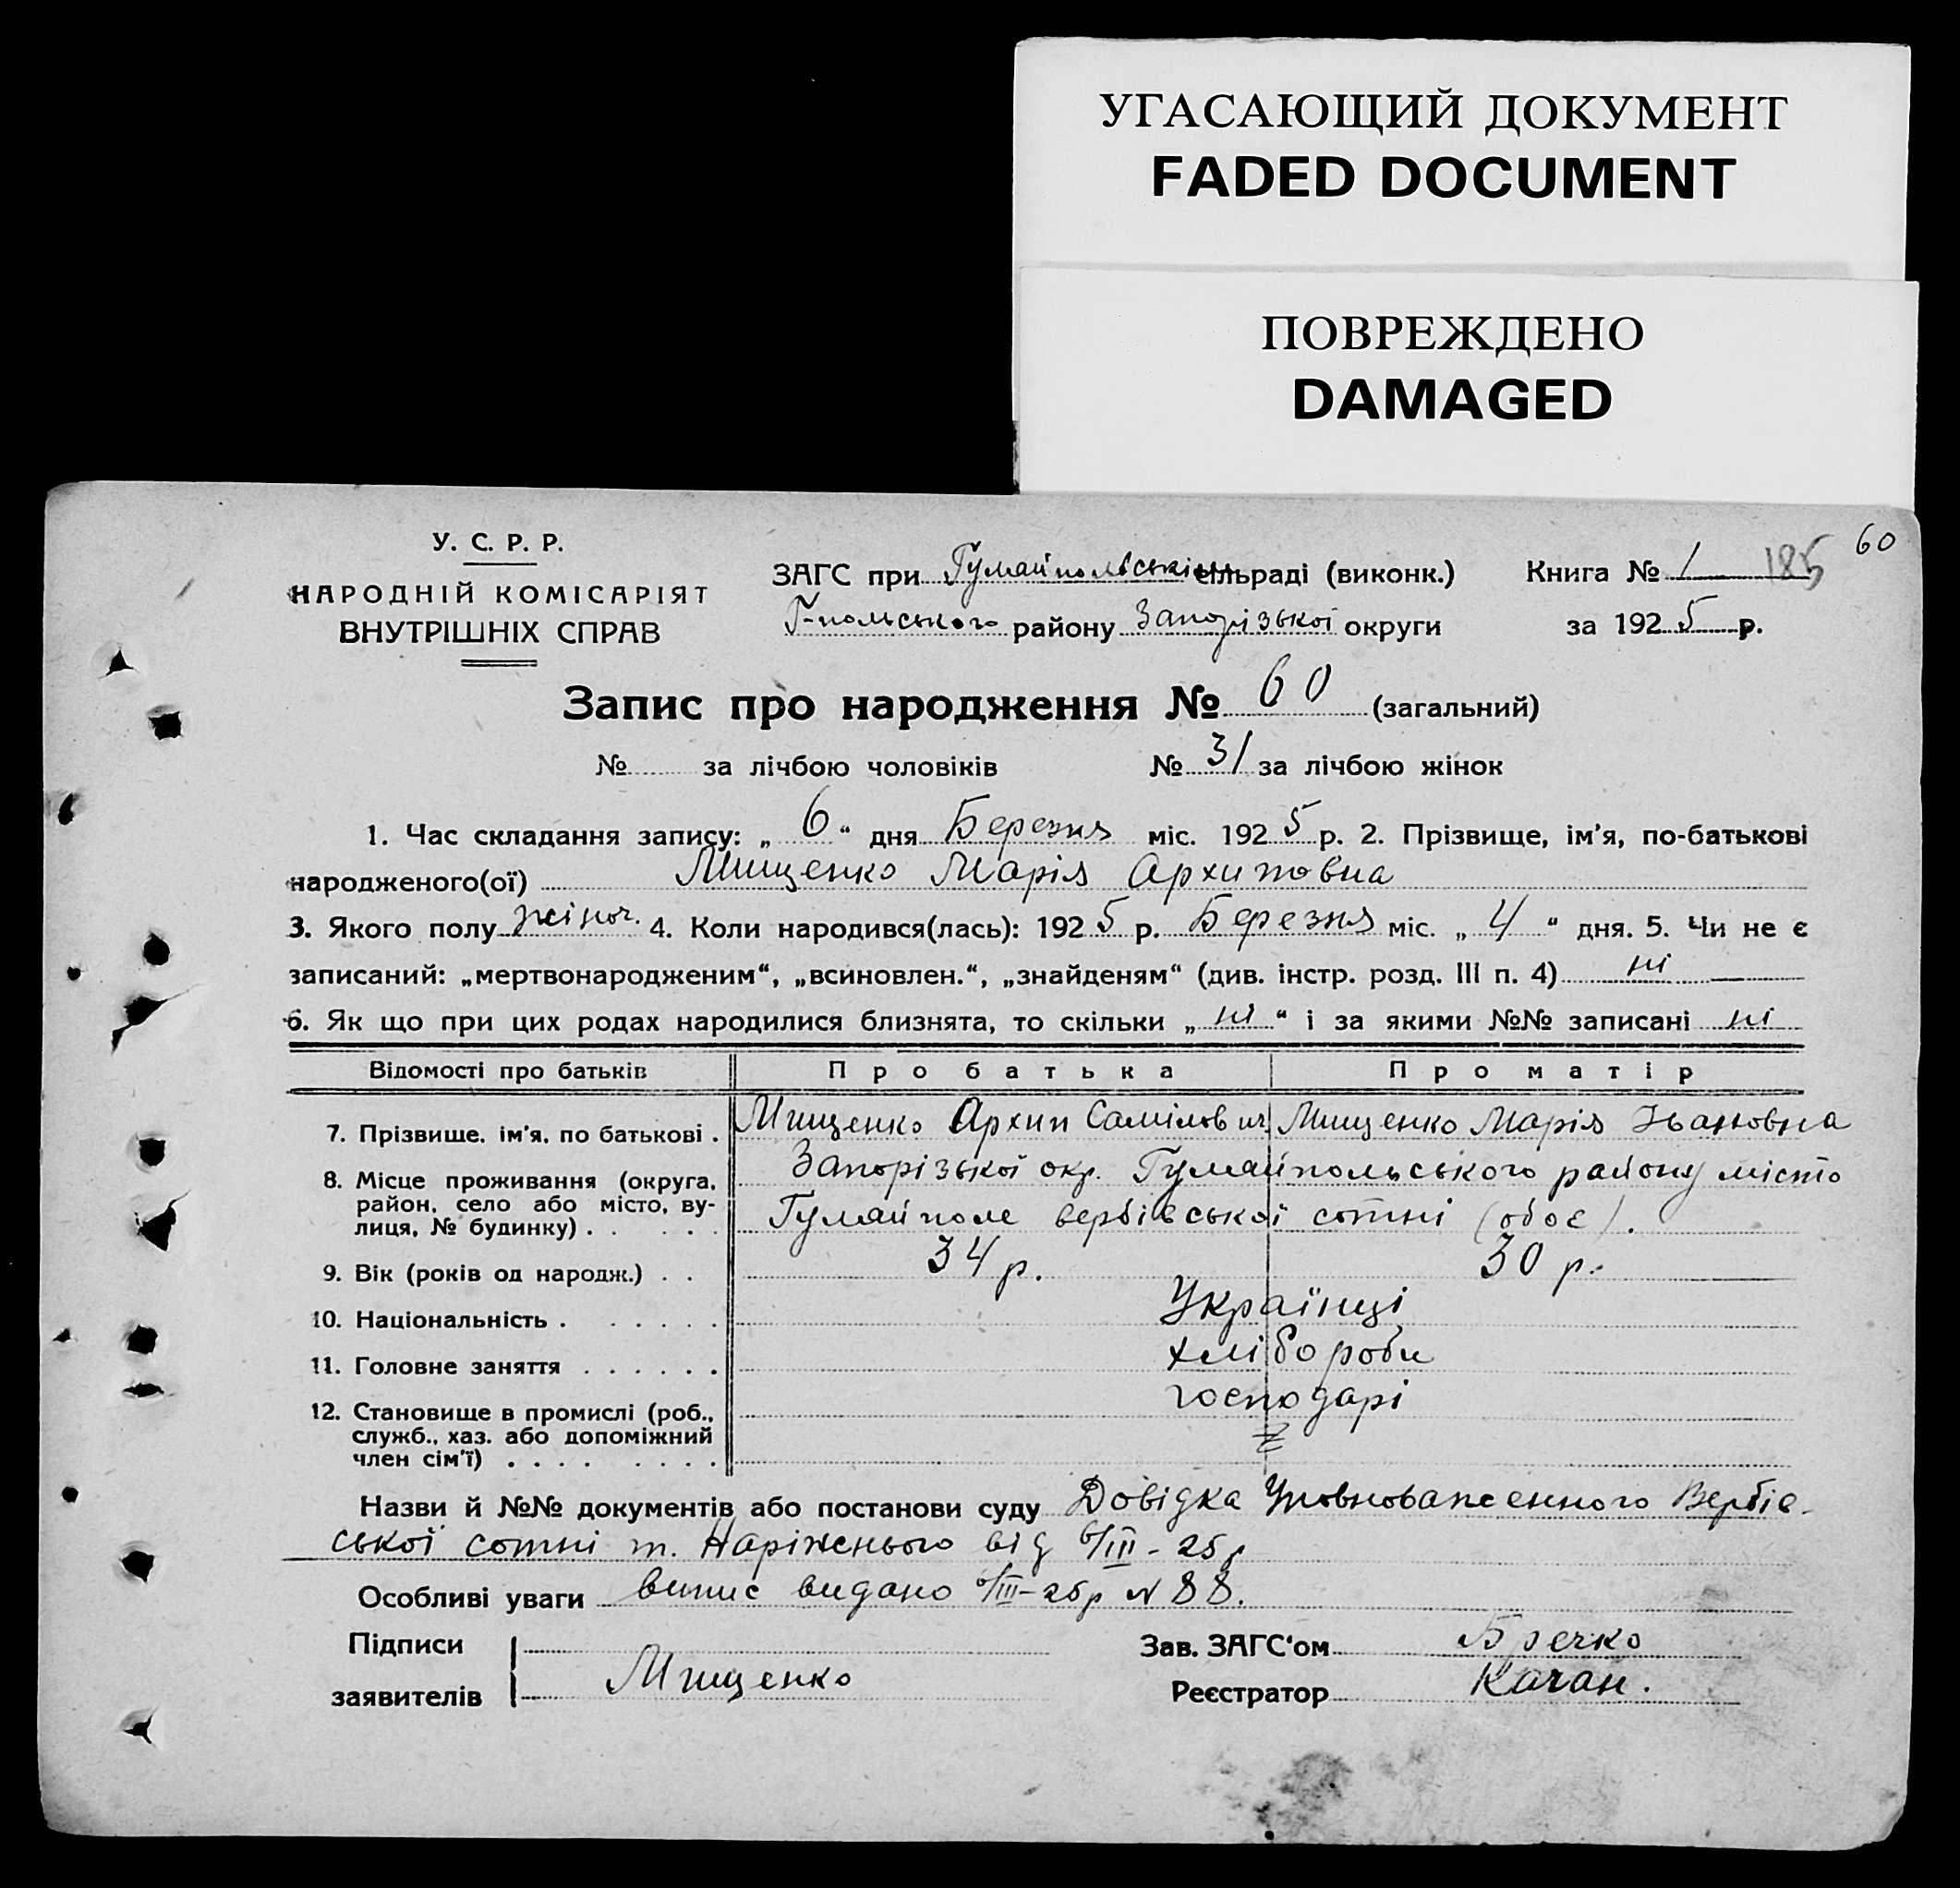 УГАСАЮЩИЙ ДОКУМЕНТ
FADED DOCUMENT
ПОВРЕЖДЕНО
DAMAGED
60
У. С. Р. Р.
НАРОДНІЙ КОМІСАРІЯТ
ВНУТРІШНІХ СПРАВ
ЗАГС при Гуляйпольській сільраді (виконк.)
Г-польського району Запорізької округи
Книга № 1 185
за 1925 р.
Запис про народження № 60 (загальний)
№ за лічбою чоловіків № 31 за лічбою жінок
1. Час складання запису: „ 6 “ дня Березня міс. 1925 р. 2. Прізвище, ім'я, по-батькові
народженого(ої) Мищенко Марія Архиповна
3. Якого полу жіноч. 4. Коли народився(лась): 1925 р. Березня міс. „ 4 “ дня. 5. Чи не є
записаний: „мертвонародженим“, „всиновлен.“, „знайденям“ (див. інстр. розд. III п. 4) ні
6. Як що при цих родах народилися близнята, то скільки „ ні “ і за якими №№ записані ні
Відомості про батьків Про батька Про матір
7. Прізвище. ім'я. по батькові . Мищенко Архип Самілович Мищенко Марія Івановна
8. Місце проживання (округа, Запорізької окр. Гуляйпольського району місто
район, село або місто, ву-
лиця, № будинку) . . . . . Гуляйполе вербівської сотні (обоє).
9. Вік (років од народж.) . . 34 р. 30 р.
10. Національність . . . . . . Українці
11. Головне заняття . . . . . . хлібороби
12. Становище в промислі (роб., господарі
служб., хаз. або допоміжний
член сім'ї) . . . . . . . .
Назви й №№ документів або постанови суду Довідка Уповноваженного Вербів-
ської сотні т. Наріжнього від 6/III - 25 р
Особливі уваги випис видано 6/III-25р № 88.
Підписи
заявителів Мищенко
Зав. ЗАГС'ом Бречко
Реєстратор Качан.